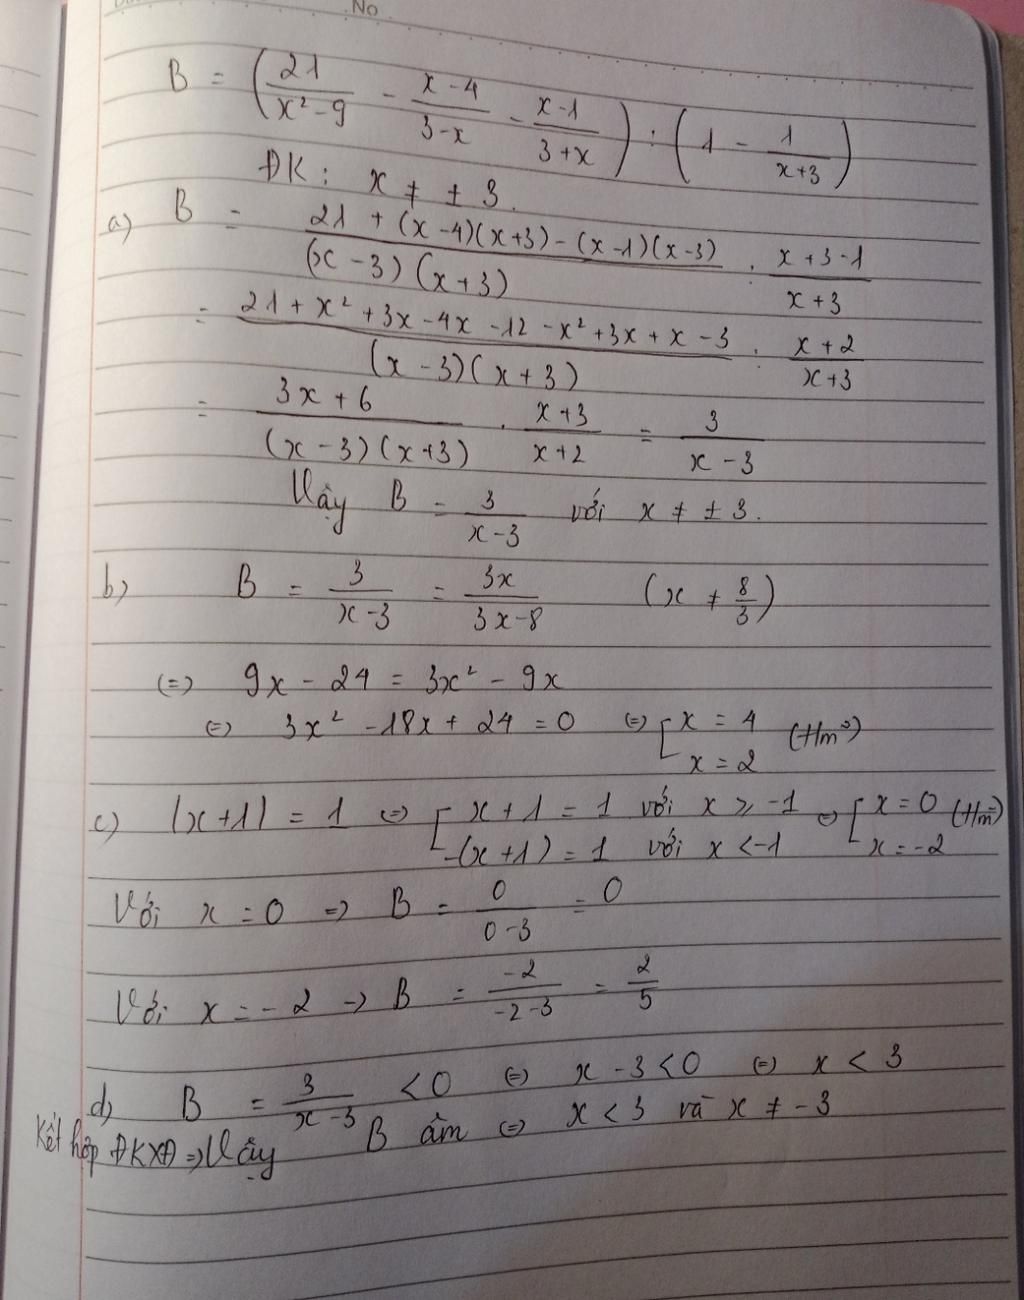 No
B = (21/(x² - 9) - (x - 4)/(3 - x) - (x - 1)/(3 + x)) : (1 - 1/(x + 3))
ĐK : x ≠ ± 3.
a) B = (21 + (x - 4)(x + 3) - (x - 1)(x - 3))/((x - 3)(x + 3)) : (x + 3 - 1)/(x + 3)
= (21 + x² + 3x - 4x - 12 - x² + 3x + x - 3)/((x - 3)(x + 3)) : (x + 2)/(x + 3)
= (3x + 6)/((x - 3)(x + 3)) . (x + 3)/(x + 2) = 3/(x - 3)
Vậy B = 3/(x - 3) với x ≠ ± 3.
b) B = 3/(x - 3) = 3x/(3x - 8) (x ≠ 8/3)
(=) 9x - 24 = 3x² - 9x
(=) 3x² - 18x + 24 = 0 (=) [x = 4 x = 2 (t/m)
c) |x + 1| = 1 (=) [x + 1 = 1 với x ≥ -1 -(x + 1) = 1 với x < -1 (=) [x = 0 x = -2 (t/m)
Với x = 0 => B = 0/(0 - 3) = 0
Với x = - 2 -> B = -2/(-2 - 3) = 2/5
d) B = 3/(x - 3) < 0 (=) x - 3 < 0 (=) x < 3
Kết hợp ĐKXĐ => Vậy B âm (=) x < 3 và x ≠ - 3